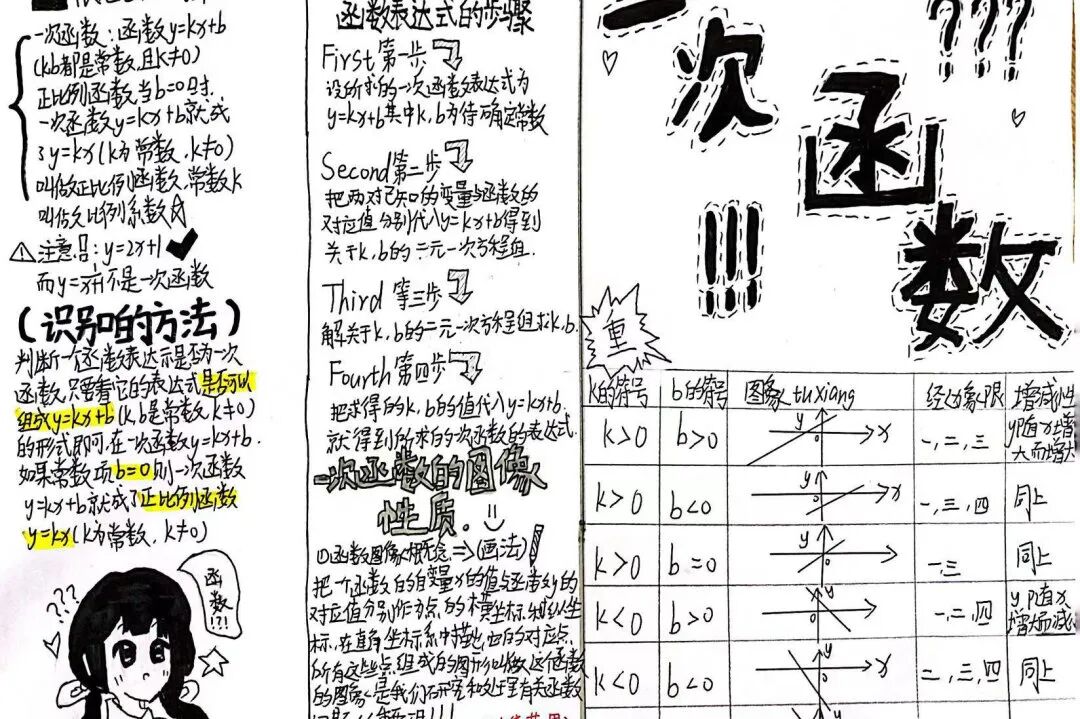 一次函数：函数y=kx+b
(kb都是常数,且k≠0)
正比例函数当b=0时.
一次函数y=kx+b就成
了y=kx(k为常数，k≠0)
叫做正比例函数,常数k
叫做比例系数
注意!!:y=2x+1
而y=
不是一次函数
(识别的方法)
判断一个函数表达示是否为一次
函数,只要看它的表达式是否可以
组成y=kx+b(k,b是常数,k≠0)
的形式即可,在一次函数y=kx+b.
如果常数项b=0则一次函数
y=kx+b就成了正比例函数
y=kx(k为常数，k≠0)
???
函数!?!
函数表达式的步骤
First第一步
设所求的一次函数表达式为
y=kx+b其中k,b为待确定常数
Second第二步
把两对已知的变量与函数的
对应值分别代入y=kx+b得到
关于k,b的二元一次方程组.
Third 第三步
解关于k,b的二元一次方程组求k,b.
Fourth第四步
把求得的k,b的值代入y=kx+b.
就得到所求的一次函数的表达式.
一次函数的图像
性质.
①函数图象概念=>(画法)
把一个函数的自变量x的值与函数y的
对应值分别作为点的横坐标和纵坐
标,在直角坐标系中描出它的对应点
所有这些点组成的图形叫做这个函数
的图象<是我们研究和处理有关函数
一次函数
???
!!!
重
k的符号 b的符号 图象 tuxiang 经过象限 增减性
k>0 b>0 y x 0 一,二,三 y随x增大而增大
k>0 b<0 y x 0 一,三,四 同上
k>0 b=0 y 0 一,三 同上
k<0 b>0 x y 0 一,二,四 y随x增大而减
k<0 b<0 y x 0 二,三,四 同上